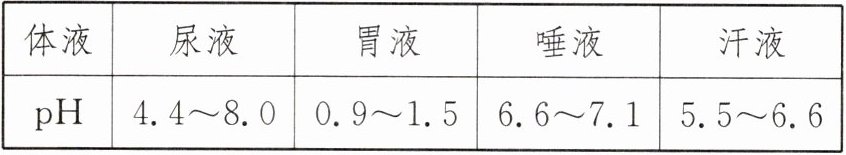 体液 尿液 胃液 唾液 汗液
pH 4.4～8.0 0.9～1.5 6.6～7.1 5.5～6.6